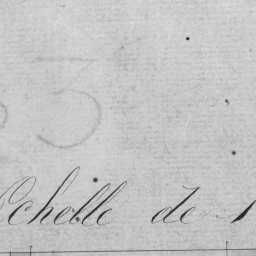 3
Echelle de 1